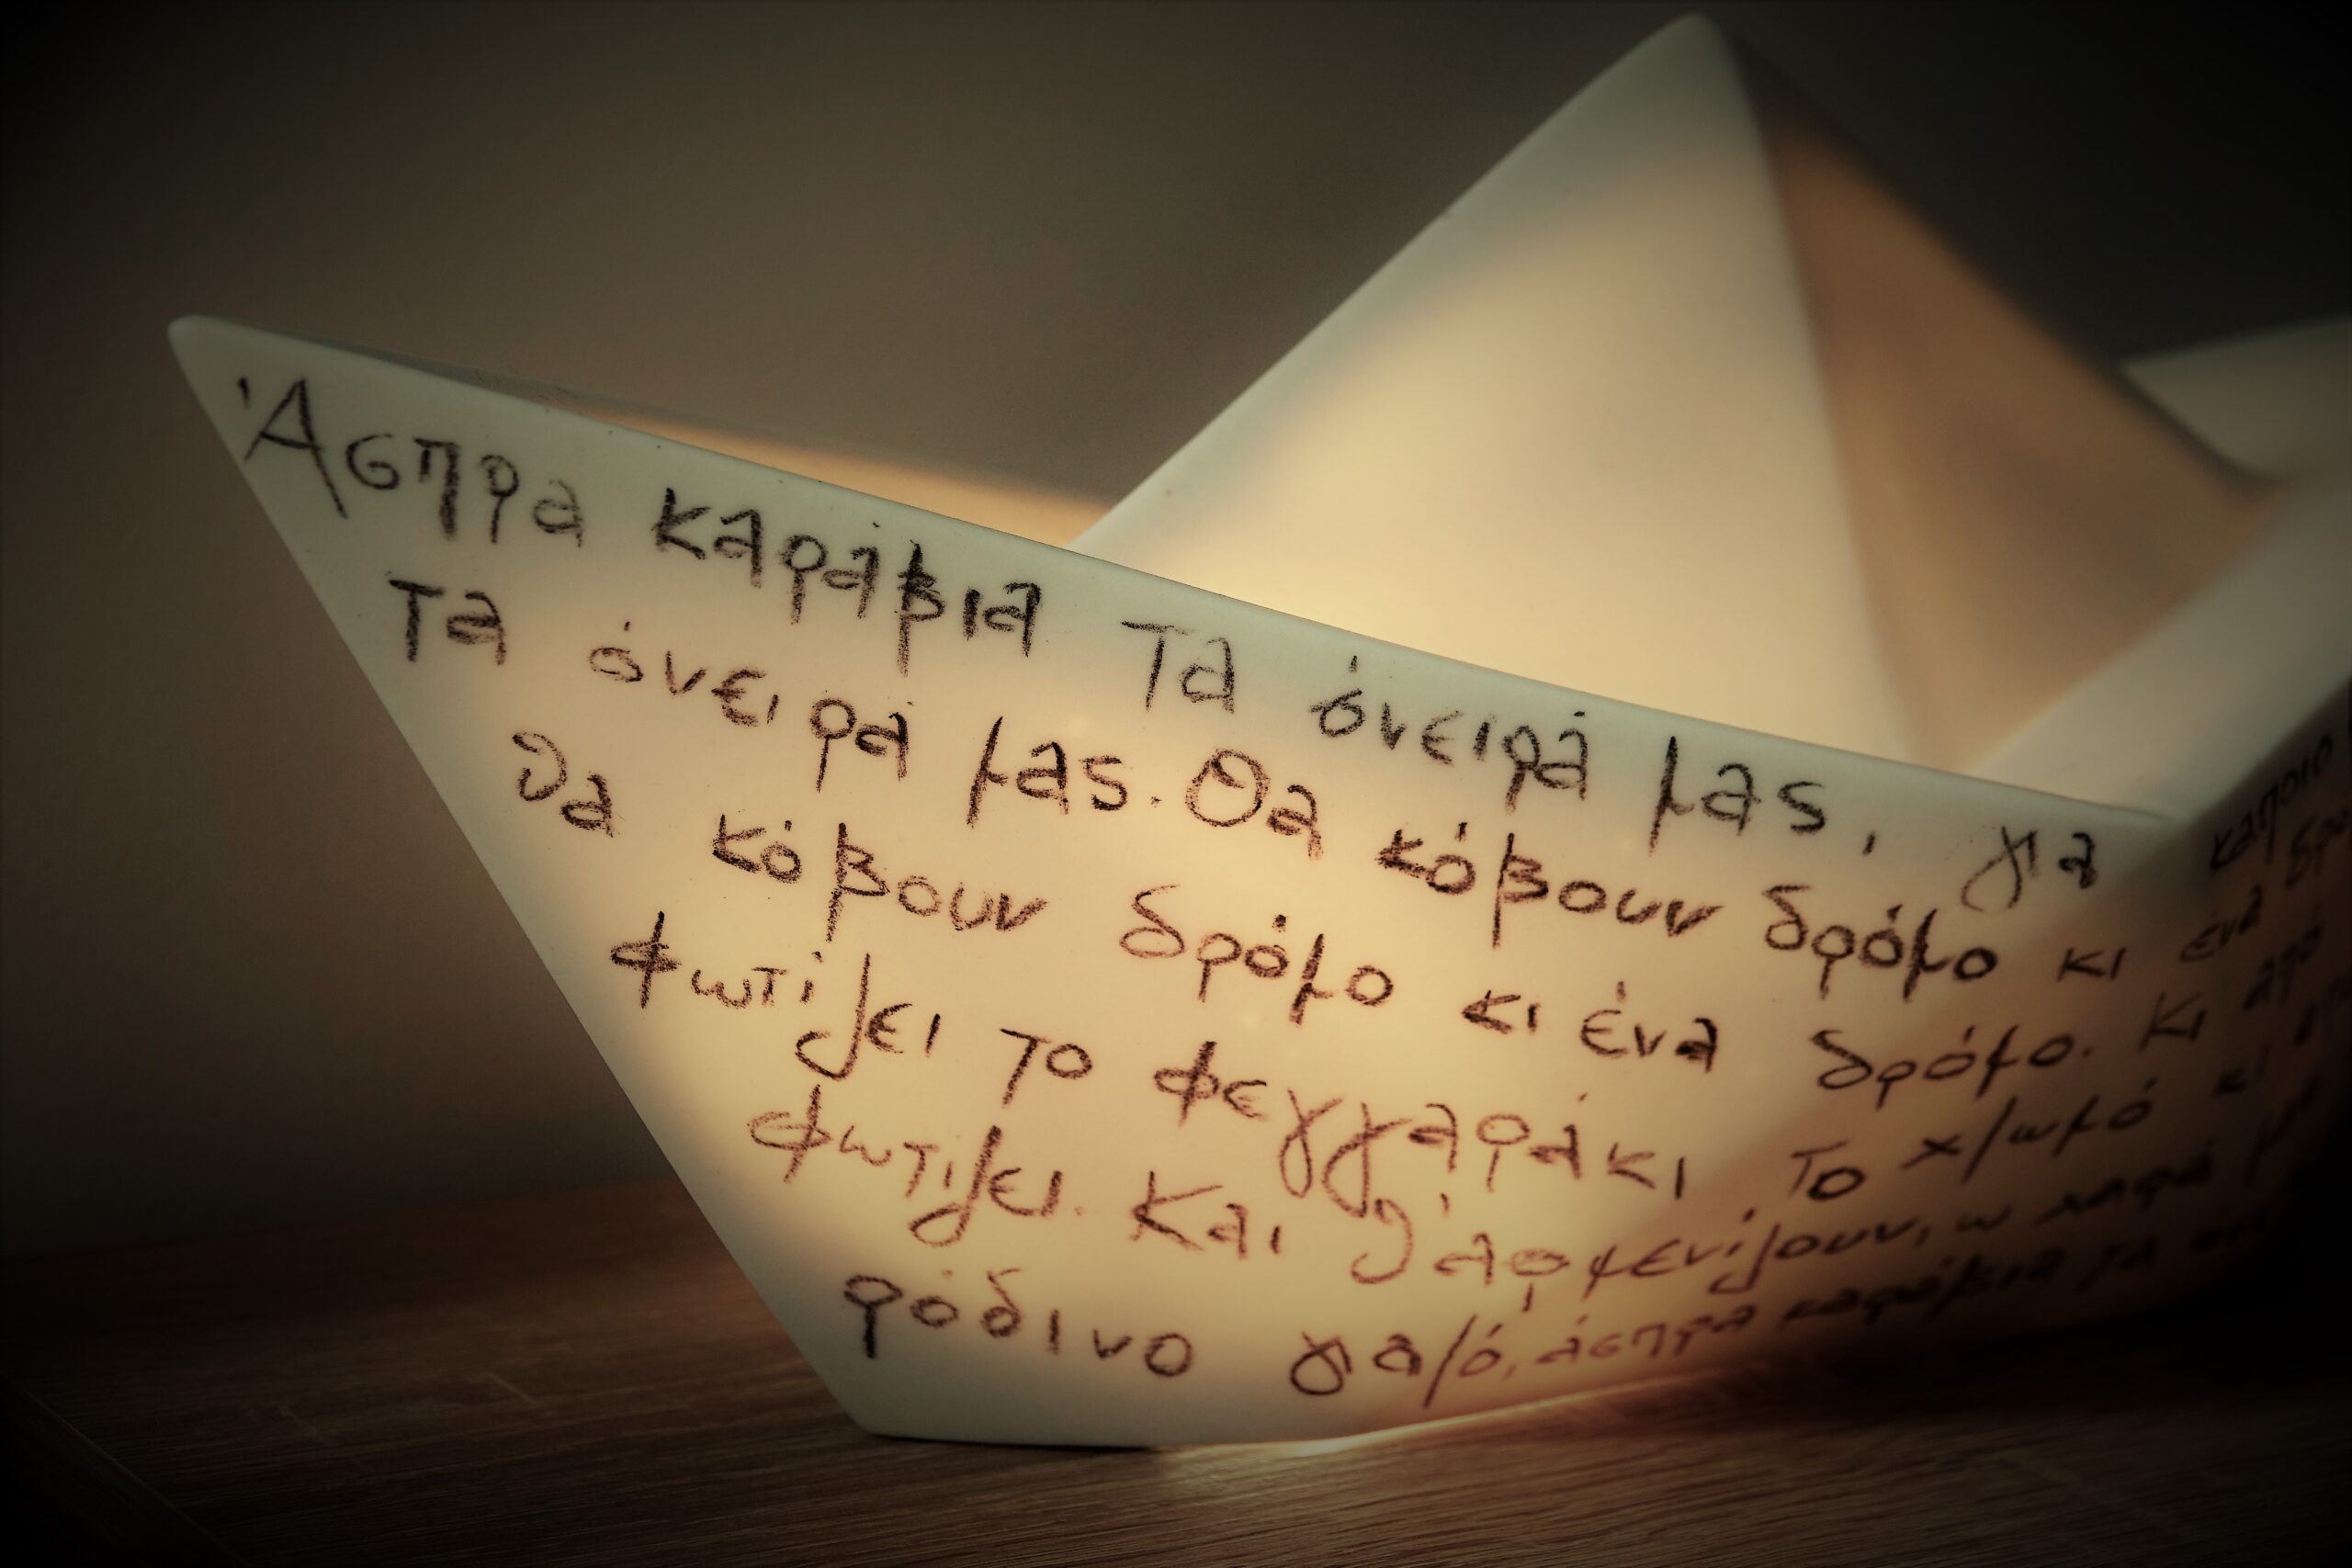 Άσπρα καράβια τα όνειρά μας, για κάποιο
τα όνειρά μας. Θα κόβουν δρόμο κι ένα
θα κόβουν δρόμο κι ένα δρόμο. Κι από
φωτίζει το φεγγαράκι το χλωμό κι
φωτίζει. Και θ' αρμενίζουν, ω χαρά
ρόδινο γιαλό, άσπρα καράβια τα